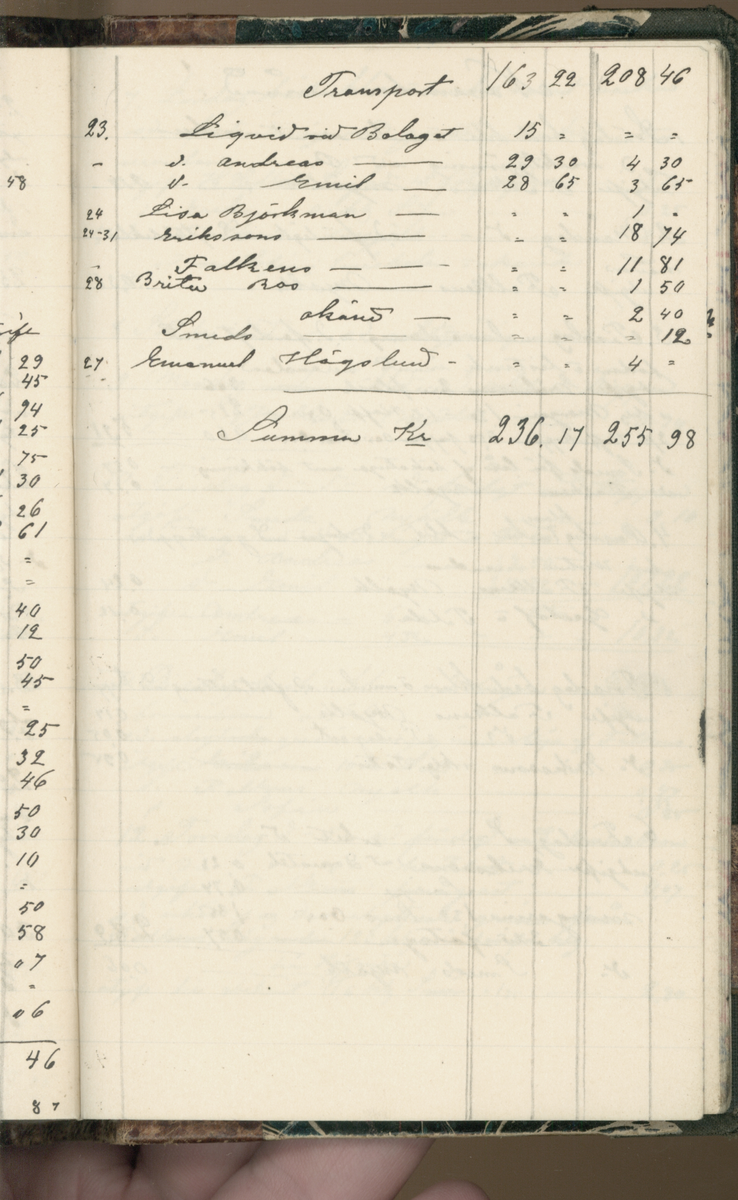 48
29
45
94
25
75
30
26
61
=
=
40
12
50
45
=
25
32
46
50
30
10
=
50
58
07
=
06
46
87
Transport 163 22 208 46
23. Liqvid vid Bolaget 15 = = =
- d. Andreas — 29 30 4 30
d. Emil — 28 65 3 65
24 Lisa Björkman — = = 1 =
24-31 Erikssons — = = 18 74
- Falkens — = = 11 81
28 Brita Boo = = 1 50
okänd — = = 2 40
Smeds — = = = 12
27 Emanuel Högslund - = = 4 =
Summa Kr 236. 17 255 98